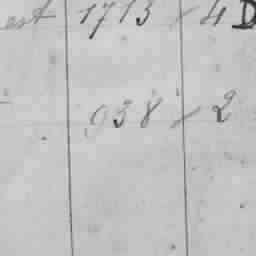 est 1713 / 4 D
938 / 2